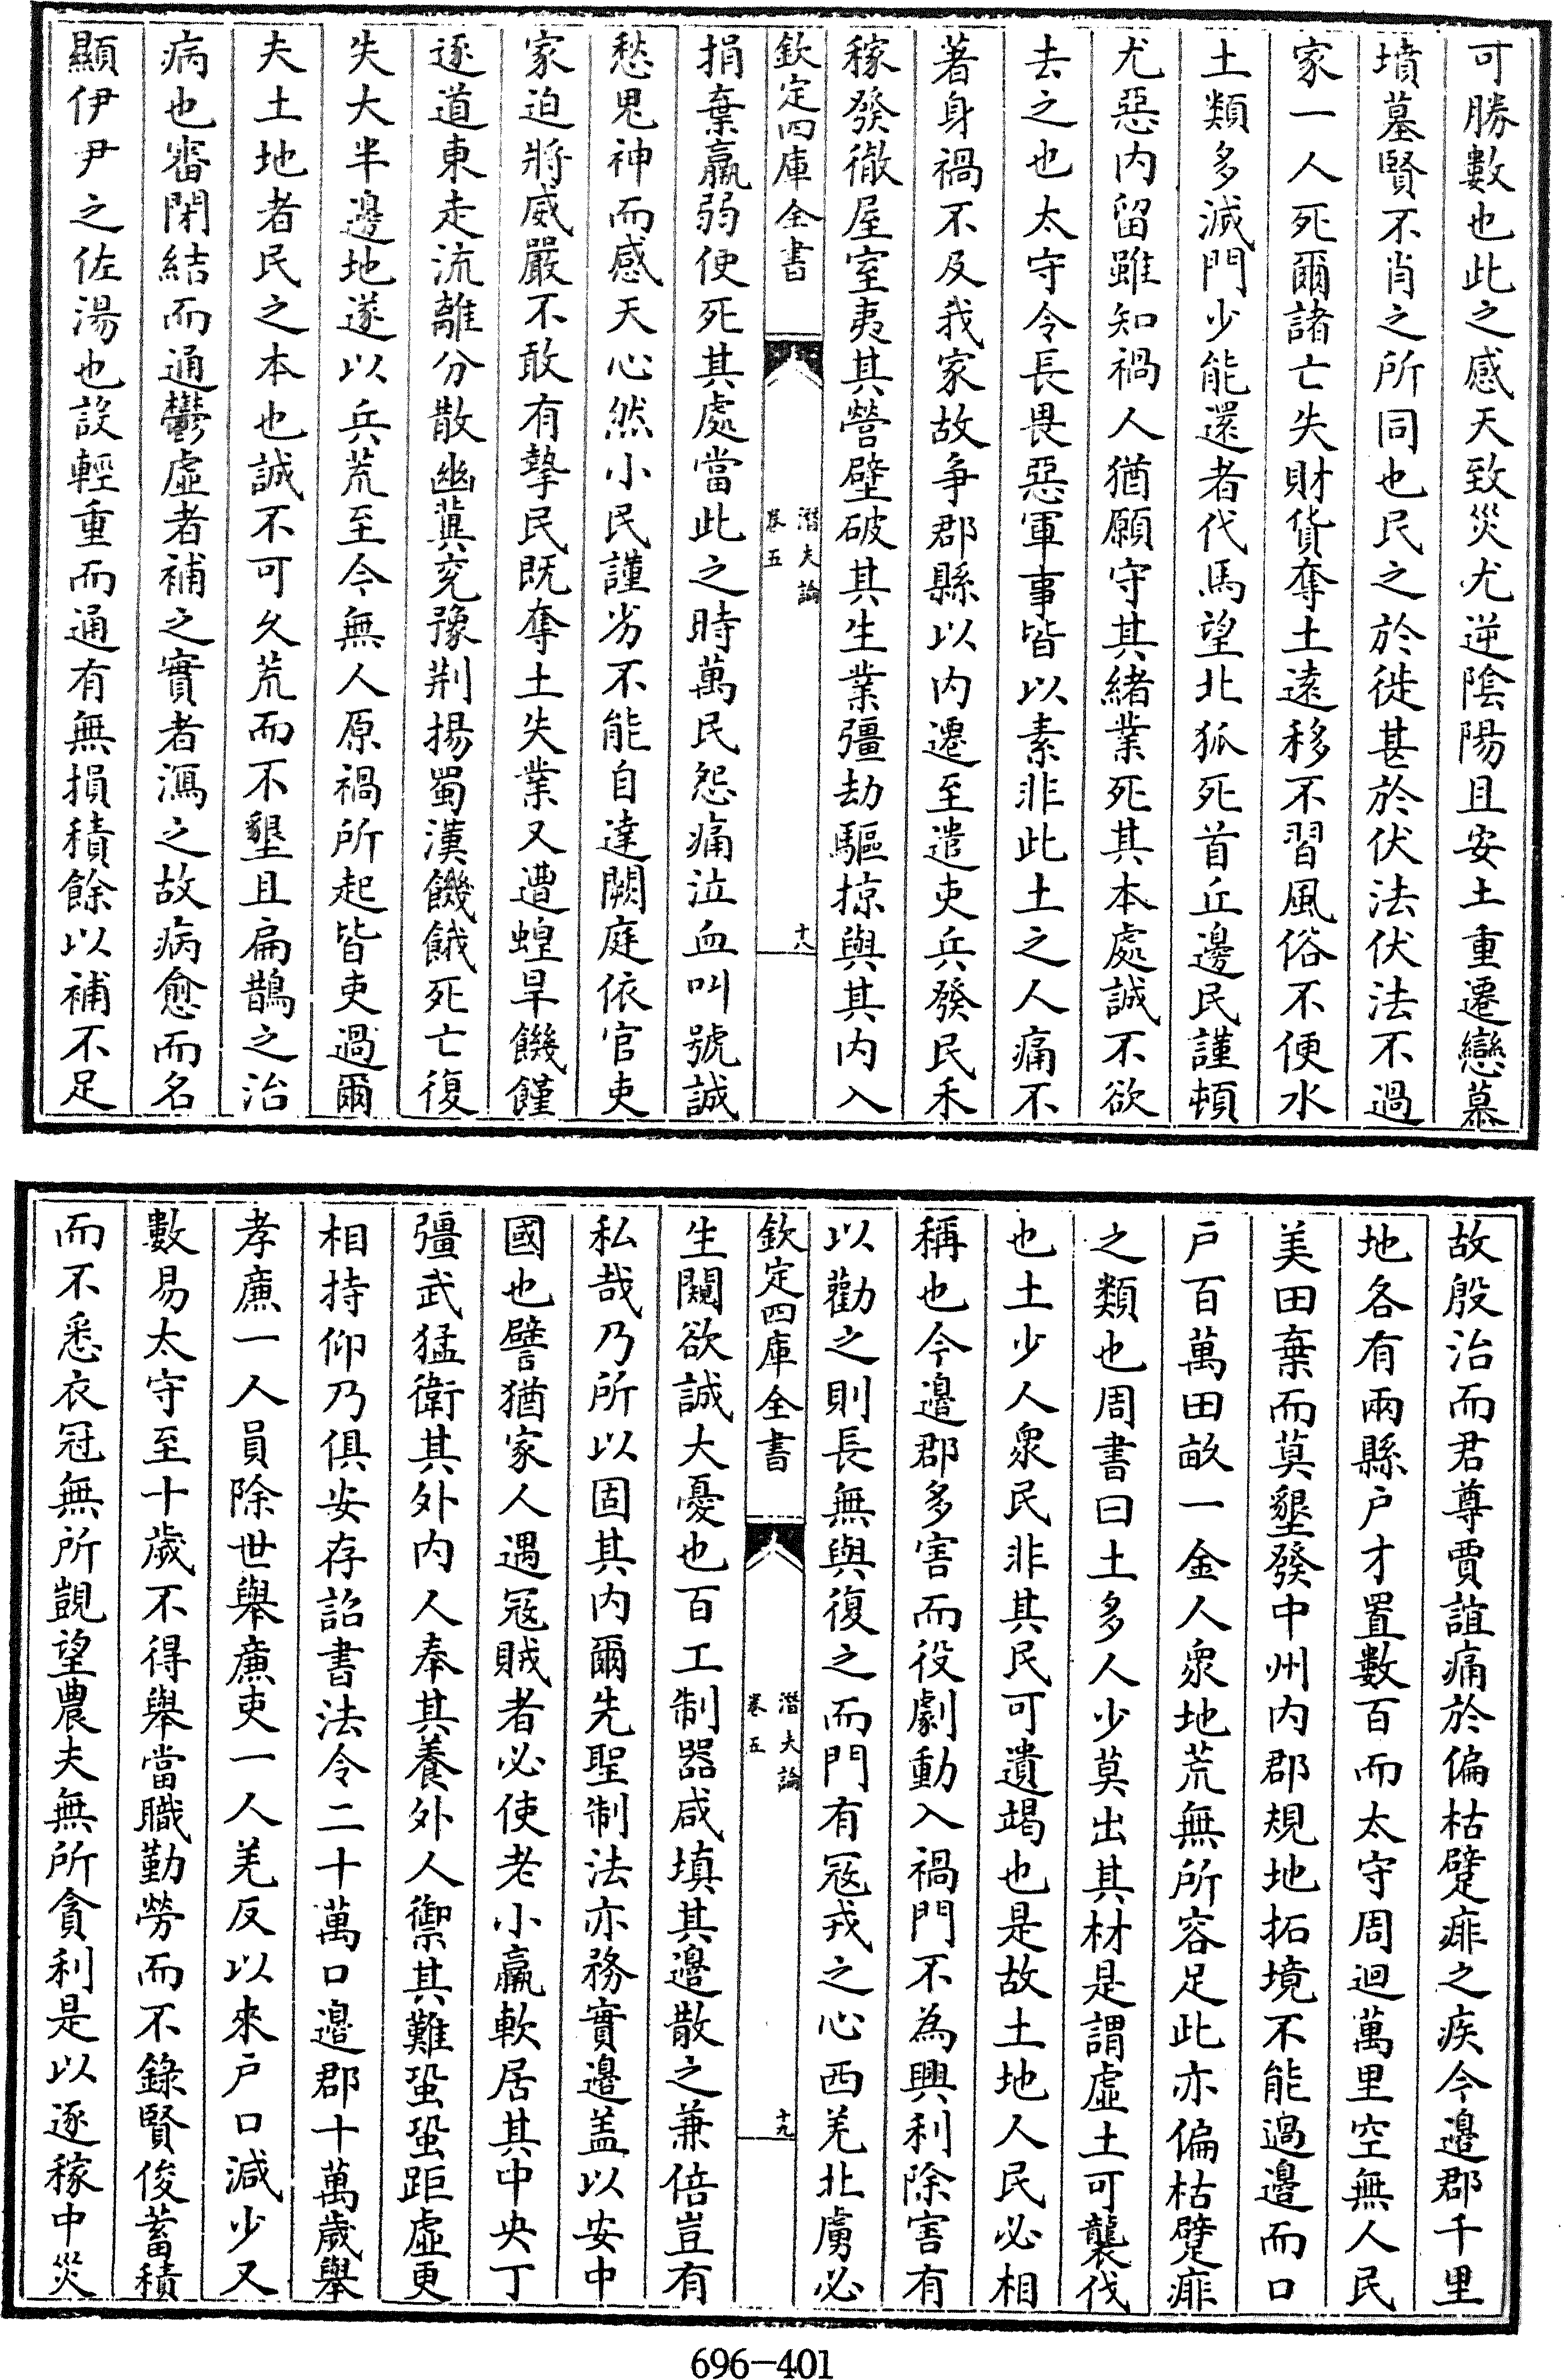 可勝數也此之感天致災尤逆陰陽且安土重遷戀慕
墳墓賢不肖之所同也民之於徙甚於伏法伏法不過
家一人死爾諸亡失財貨奪土遠移不習風俗不便水
土類多滅門少能還者代馬望北狐死首丘邊民謹頓
尤惡内留雖知禍人猶願守其緒業死其本處誠不欲
去之也太守令長畏惡軍事皆以素非此土之人痛不
著身禍不及我家故爭郡縣以内遷至遣吏兵發民禾
稼發徹屋室夷其營壁破其生業彊劫驅掠與其内入
欽定四庫全書
潛夫論
卷五
十八
捐棄羸弱使死其處當此之時萬民怨痛泣血叫號誠
愁鬼神而感天心然小民謹劣不能自達闕庭依官吏
家迫將威嚴不敢有摯民既奪土失業又遭蝗旱饑饉
逐道東走流離分散幽冀兖豫荆揚蜀漢饑餓死亡復
失大半邊地遂以兵荒至今無人原禍所起皆吏過爾
夫土地者民之本也誠不可久荒而不墾且扁鵲之治
病也審閉結而通鬱虛者補之實者瀉之故病愈而名
顯伊尹之佐湯也設輕重而通有無損積餘以補不足
故殷治而君尊賈誼痛於偏枯躄痱之疾今邊郡千里
地各有兩縣户才置數百而太守周迴萬里空無人民
美田棄而莫墾發中州内郡規地拓境不能過邊而口
户百萬田畝一金人衆地荒無所容足此亦偏枯躄痱
之類也周書曰土多人少莫出其材是謂虛土可襲伐
也土少人衆民非其民可遺竭也是故土地人民必相
稱也今邊郡多害而役劇動入禍門不為興利除害有
以勸之則長無與復之而門有寇戎之心西羌北虜必
欽定四庫全書
潛夫論
卷五
十九
生闚欲誠大憂也百工制器咸填其邊散之兼倍豈有
私哉乃所以固其内爾先聖制法亦務實邊盖以安中
國也譬猶家人遇寇賊者必使老小羸軟居其中央丁
彊武猛衛其外内人奉其養外人禦其難蛩蛩距虛更
相持仰乃俱安存詔書法令二十萬口邊郡十萬歲舉
孝廉一人員除世舉廉吏一人羌反以來户口減少又
數易太守至十歲不得舉當職勤勞而不錄賢俊蓄積
而不悉衣冠無所覬望農夫無所貪利是以逐稼中災
696-401